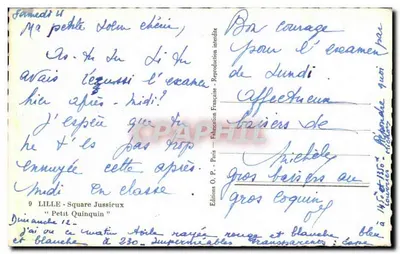 Samedi 11
Ma petite chérie,
As-tu su si tu
avais réussi l'examen
hier après-midi?
J'espère que tu
ne t'es pas trop
ennuyée cette après-
midi en classe.
9 LILLE - Square Jussieux
"Petit Quinquin"
Dimanche 12 -
J'ai ce matin toile rayée rouge et blanche bleu
et blanche à 230 - Imperméables transparents:
Editions O. P. - Paris - Fabrication Française - Reproduction interdite
Bon courage
pour l'examen
de Lundi.
Affectueux
baisers de
Michèle
gros baisers au
gros coquin
Répondre quoi
CPArama.com